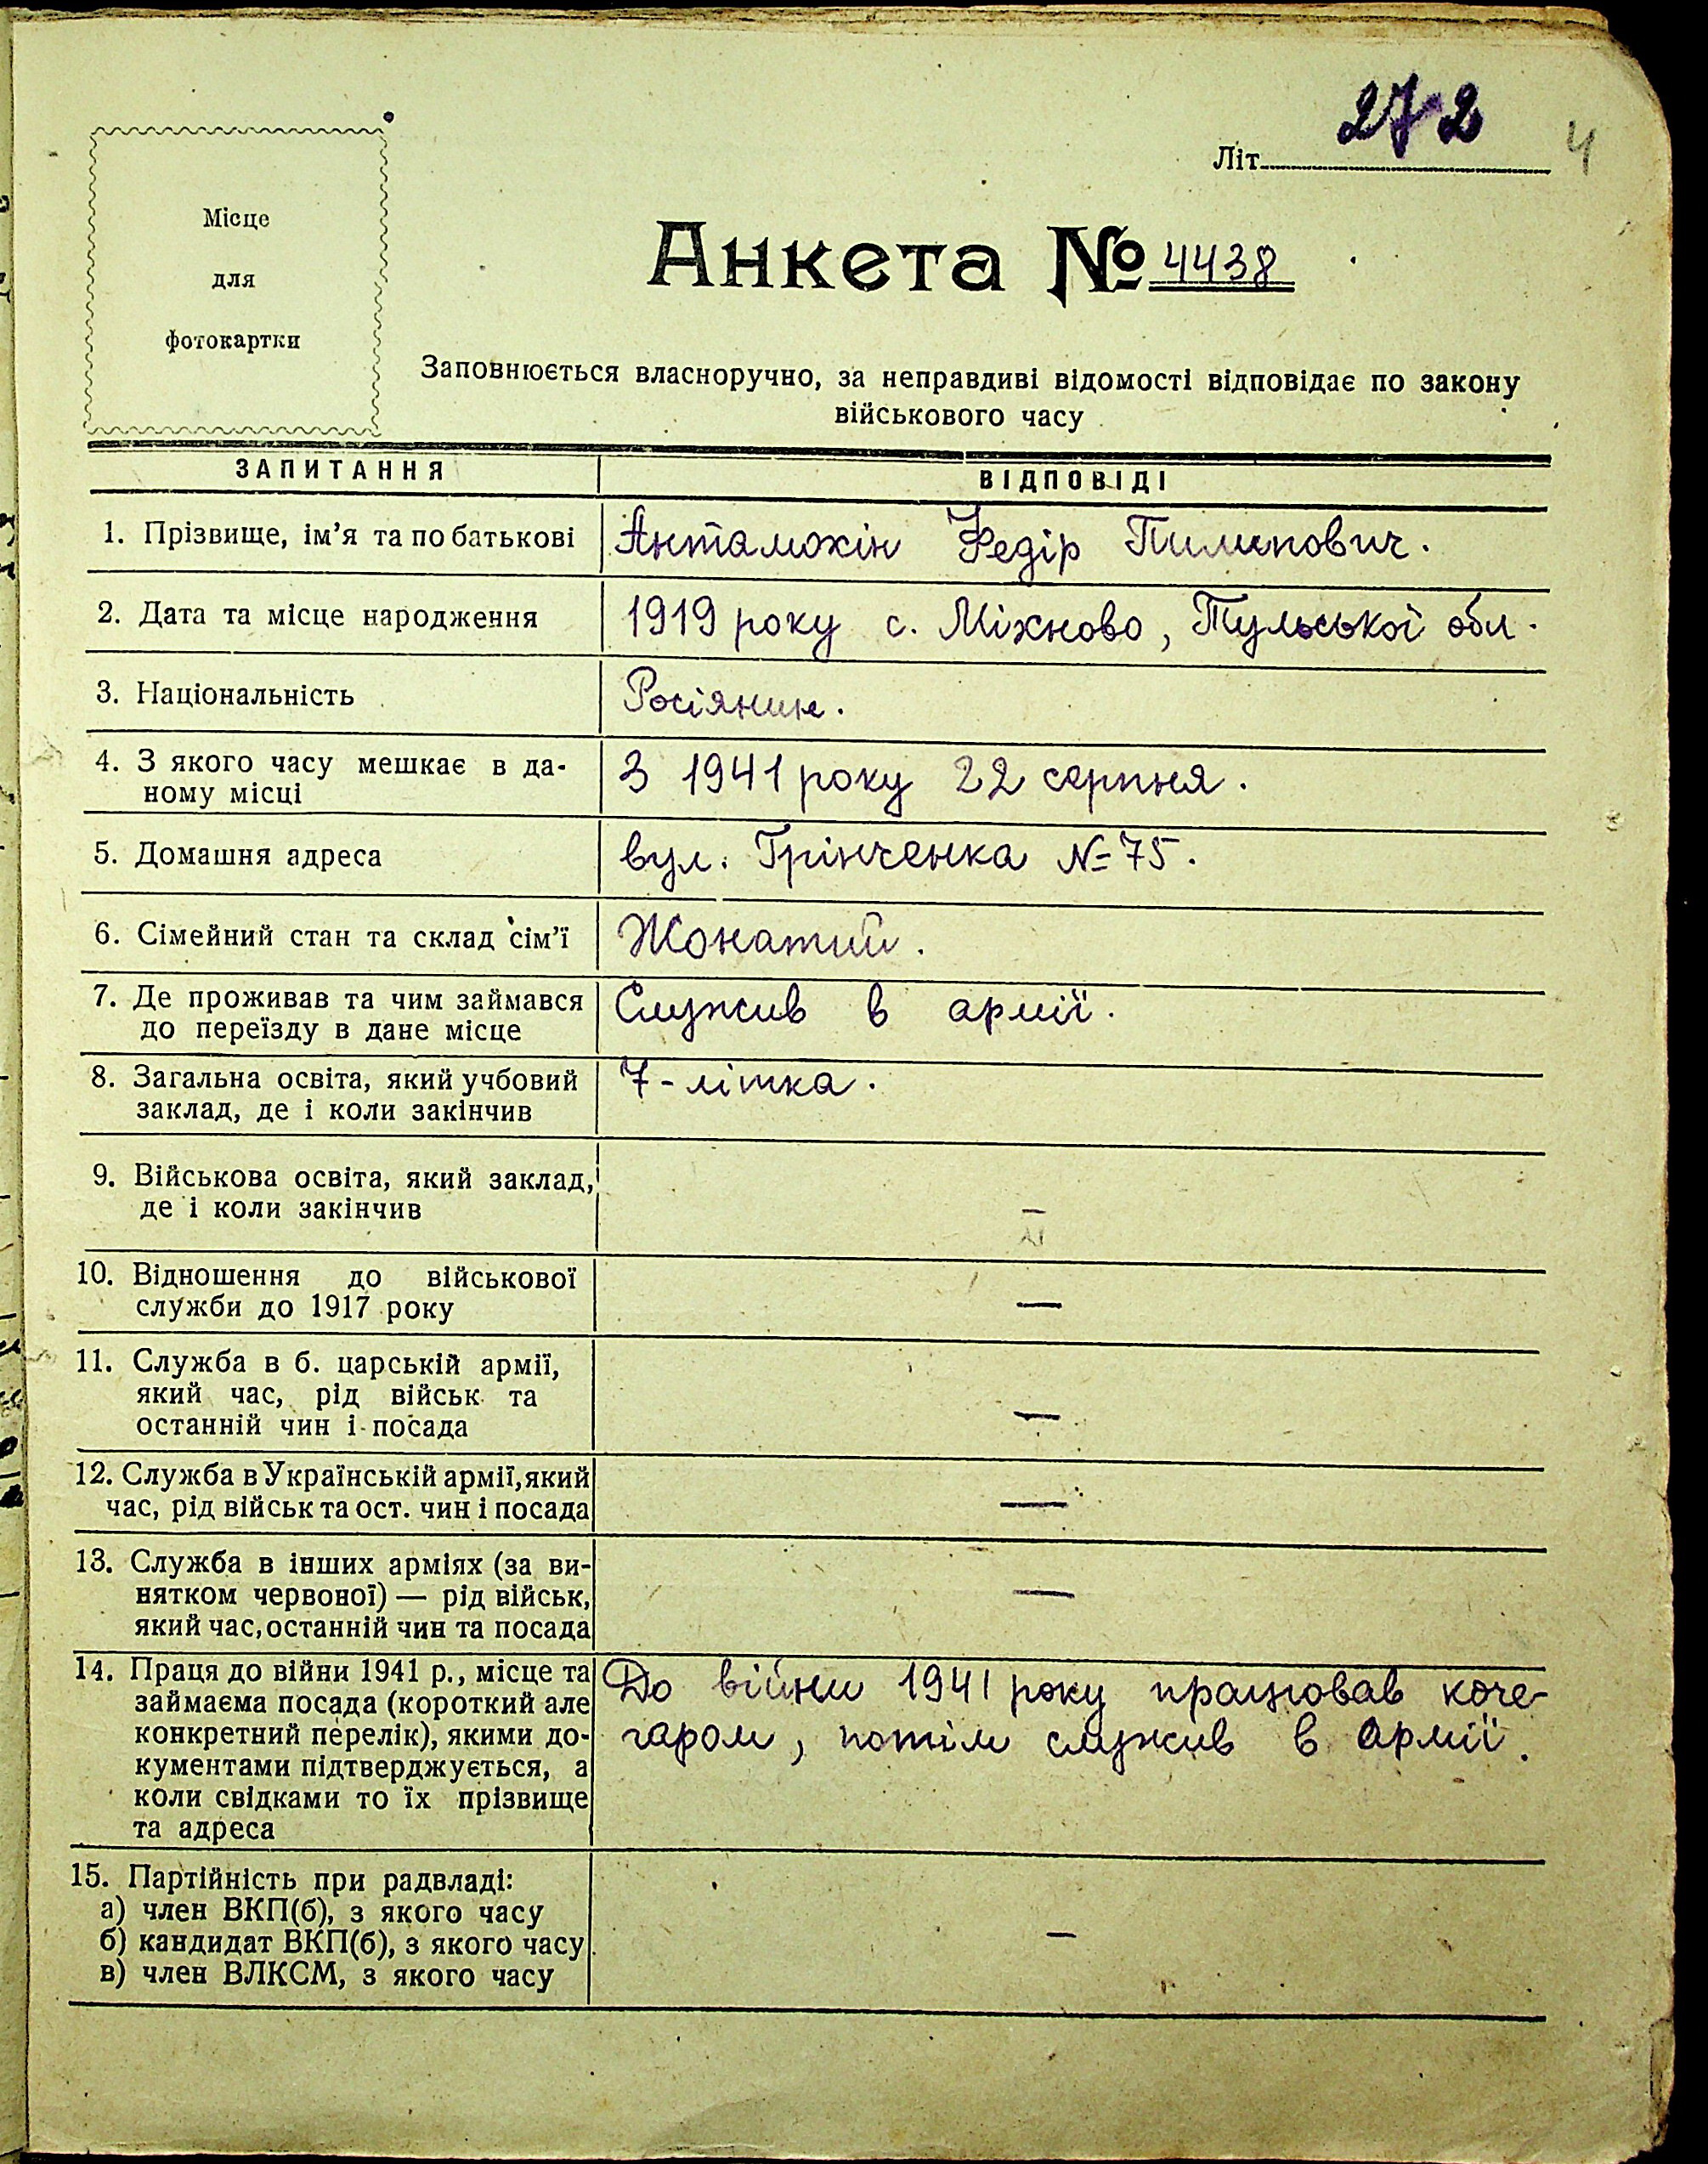 272
4
Літ
Місце
для
фотокартки
Анкета № 4438
Заповнюється власноручно, за неправдиві відомості відповідає по закону
військового часу
ЗАПИТАННЯ
ВІДПОВІДІ
1. Прізвище, ім'я та по батькові
Антамохін Федір Пилипович.
2. Дата та місце народження
1919 року с. Міхново, Тульської обл.
3. Національність
Росіянин.
4. З якого часу мешкає в да-
ному місці
З 1941 року 22 серпня.
5. Домашня адреса
вул. Грінченка № 75.
6. Сімейний стан та склад сім'ї
Жонатий.
7. Де проживав та чим займався
до переїзду в дане місце
Служив в армії.
8. Загальна освіта, який учбовий
заклад, де і коли закінчив
7-літка.
9. Військова освіта, який заклад,
де і коли закінчив
—
10. Відношення до військової
служби до 1917 року
—
11. Служба в б. царській армії,
який час, рід військ та
останній чин і посада
—
12. Служба в Українській армії, який
час, рід військ та ост. чин і посада
—
13. Служба в інших арміях (за ви-
нятком червоної) — рід військ,
який час, останній чин та посада
—
14. Праця до війни 1941 р., місце та
займаєма посада (короткий але
конкретний перелік), якими до-
кументами підтверджується, а
коли свідками то їх прізвище
та адреса
До війни 1941 року працював коче-
гаром, потім служив в армії.
15. Партійність при радвладі:
а) член ВКП(б), з якого часу
б) кандидат ВКП(б), з якого часу
в) член ВЛКСМ, з якого часу
—